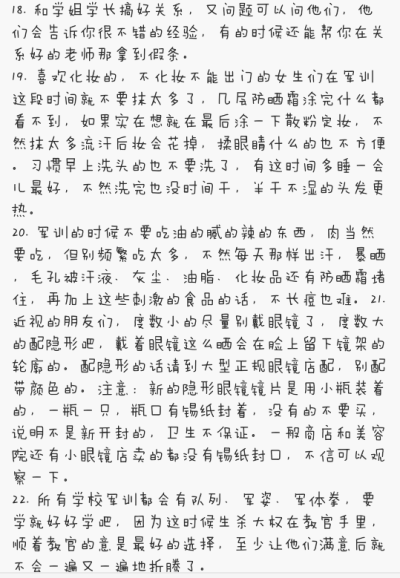 18. 和学姐学长搞好关系，又问题可以问他们，他
们会告诉你很不错的经验，有的时候还能帮你在关
系好的老师那拿到假条。
19. 喜欢化妆的，不化妆不能出门的女生们在军训
这段时间就不要抹太多了，几层防晒霜涂完什么都
看不到，如果实在想就在最后涂一下散粉定妆，不
然抹太多流汗后妆会花掉，揉眼睛什么的也不方便
。习惯早上洗头的也不要洗了，有这时间多睡一会
儿最好，不然洗完也没时间干，半干不湿的头发更
热。
20. 军训的时候不要吃油的腻的辣的东西，肉当然
要吃，但别频繁吃太多，不然每天那样出汗，暴晒
，毛孔被汗液、灰尘、油脂、化妆品还有防晒霜堵
住，再加上这些刺激的食品的话，不长痘也难。21.
近视的朋友们，度数小的尽量别戴眼镜了，度数大
的配隐形吧，戴着眼镜这么晒会在脸上留下镜架的
轮廓的。配隐形的话请到大型正规眼镜店配，别配
带颜色的。注意：新的隐形眼镜镜片是用小瓶装着
的，一瓶一只，瓶口有锡纸封着，没有的不要买，
说明不是新开封的，卫生不保证。一般商店和美容
院还有小眼镜店卖的都没有锡纸封口，不信可以观
察一下。
22. 所有学校军训都会有队列、军姿、军体拳，要
学就好好学吧，因为这时候生杀大权在教官手里，
顺着教官的意是最好的选择，至少让他们满意后就
不会一遍又一遍地折腾了。